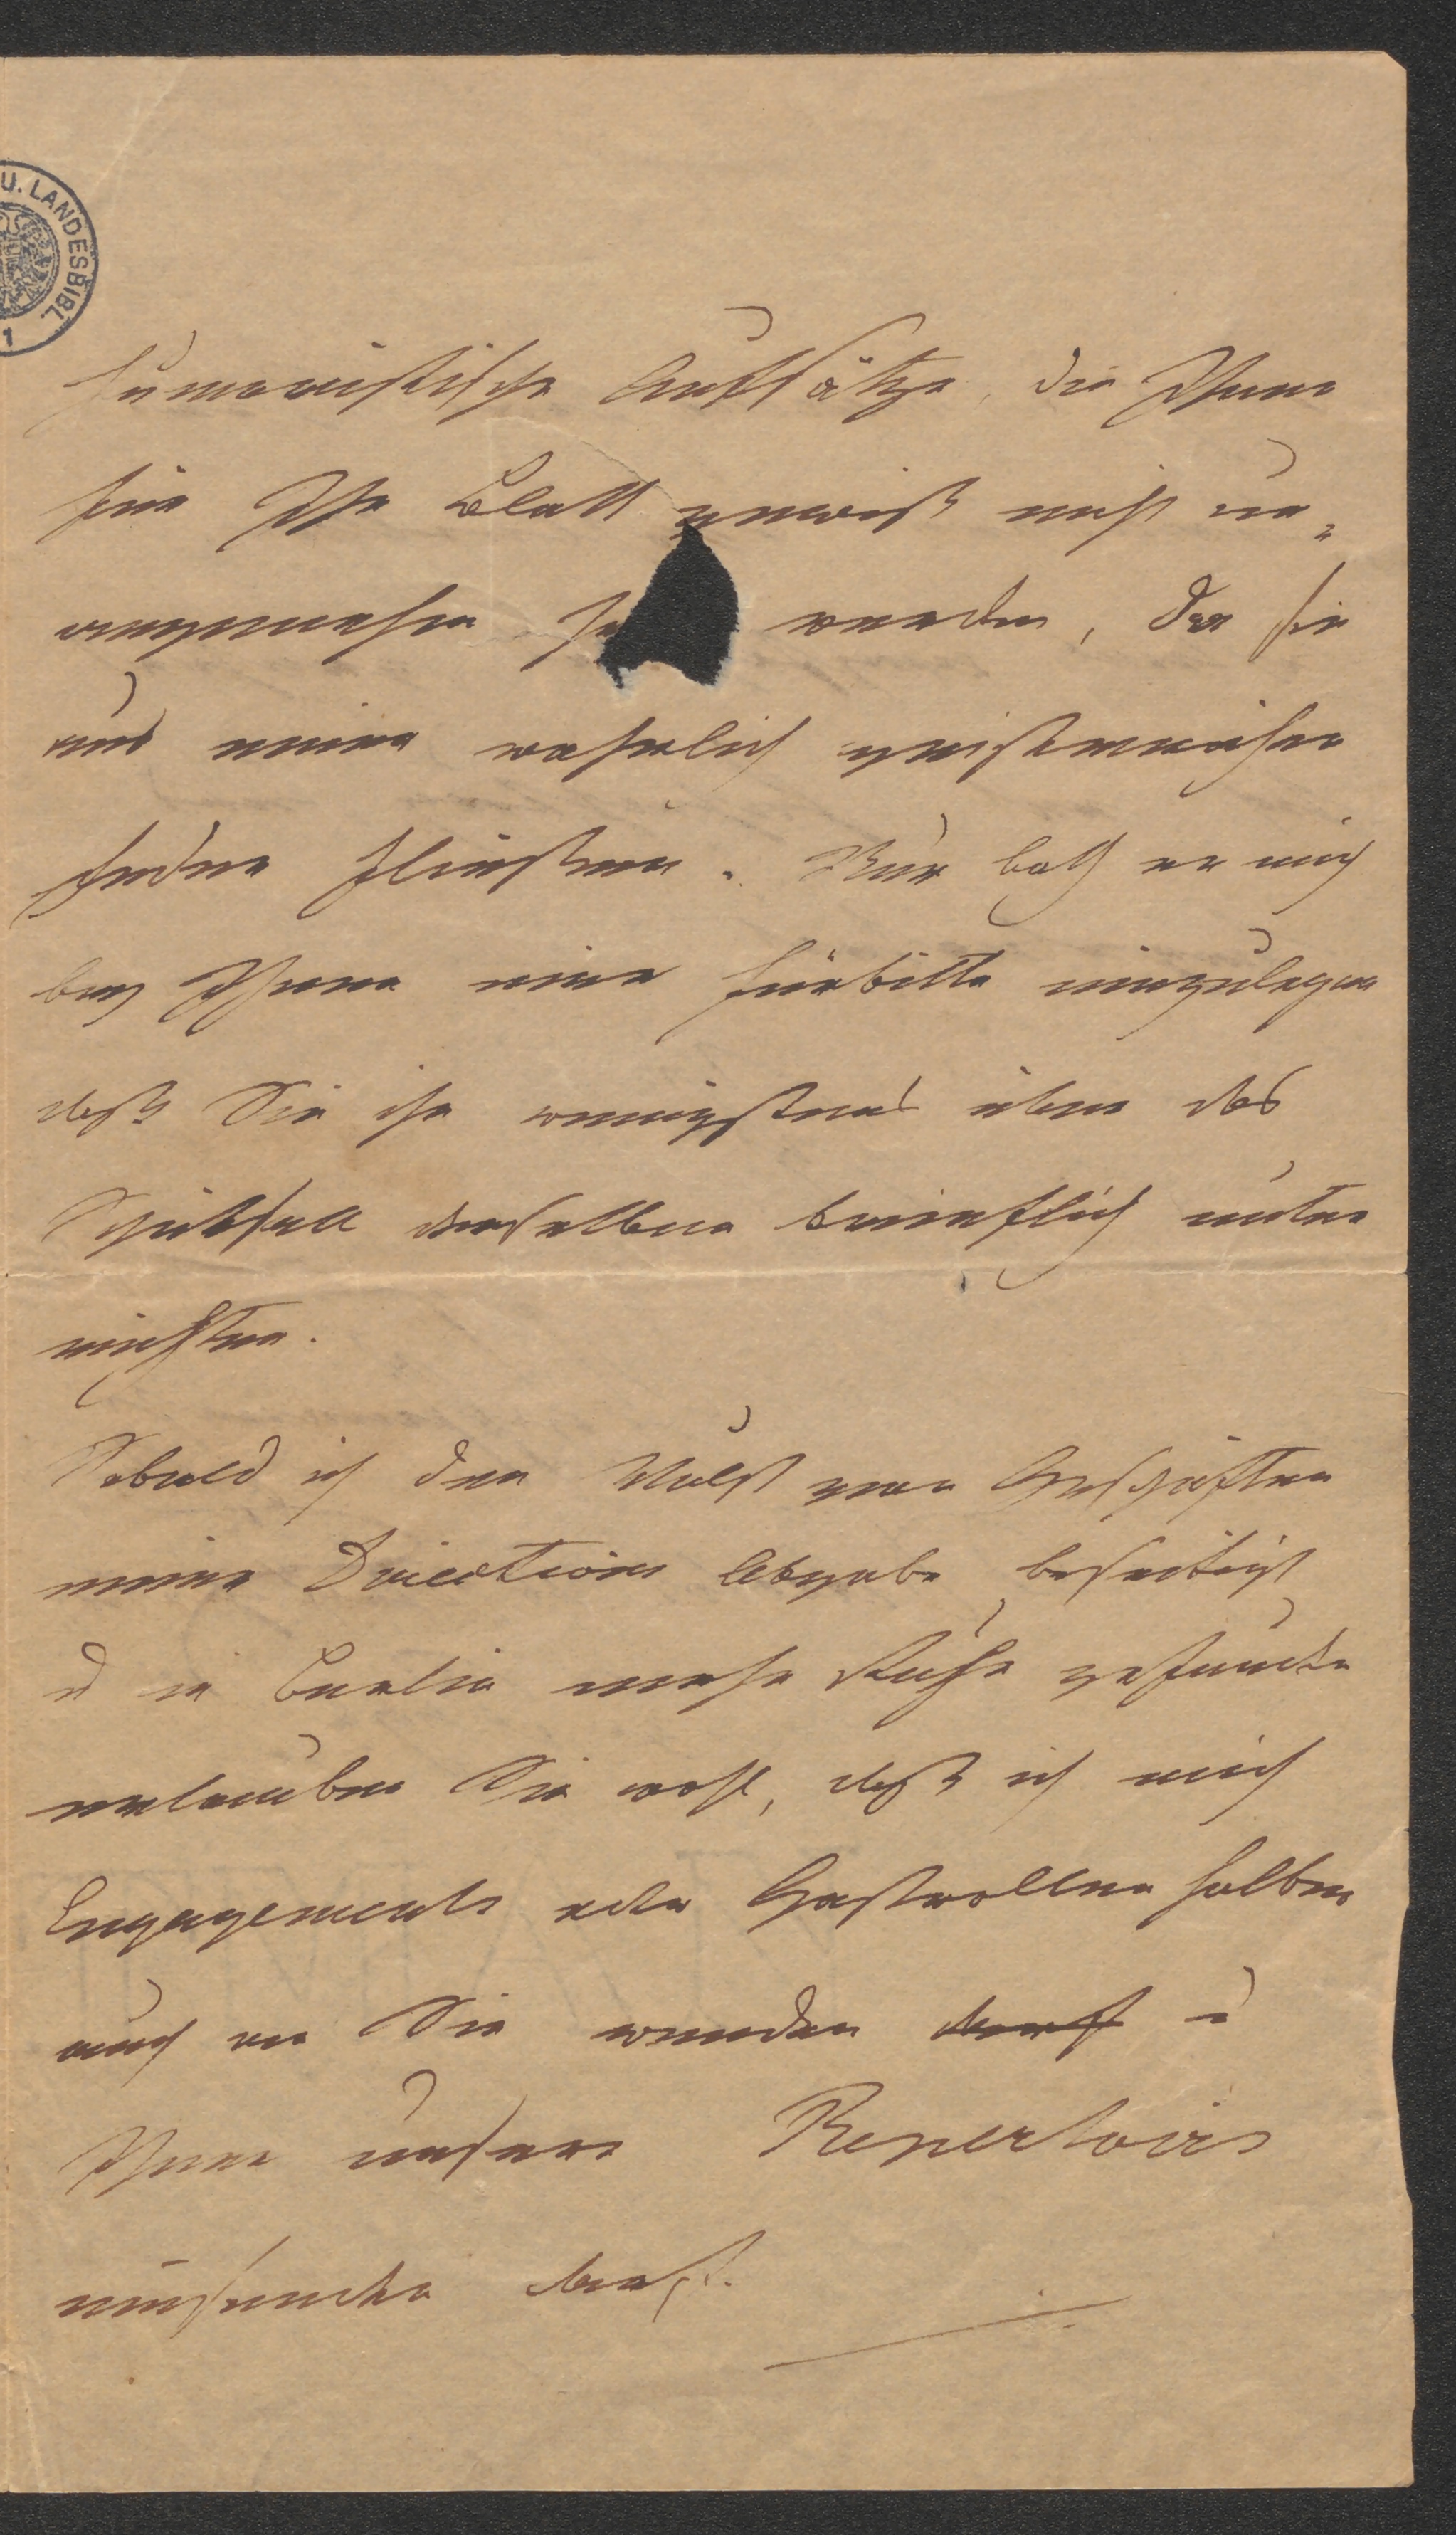 U. LANDESBIBL
1
humoristische Aufsätze, die Ihnen
für Ihr Blatt gewiß nicht un„
angenehm se werden, da sie
aus einer wahrlich geistreichen
Feder fließen. Nur bath er mich
bey Ihnen eine Fürbitte einzulegen
daß Sie ihn wenigstens über das
Schiksall derselben brieflich unter
richten.
Sobald ich den Wulst von Geschäften
meiner Directions Abgabe beseitigt
u in Berlin mehr Ruhe gefunden
erlauben Sie wohl, daß ich mich
Engagements oder Gastrollen halber
auch an Sie wenden darf u
Ihnen unsere Repertoirs
einsenden darf.